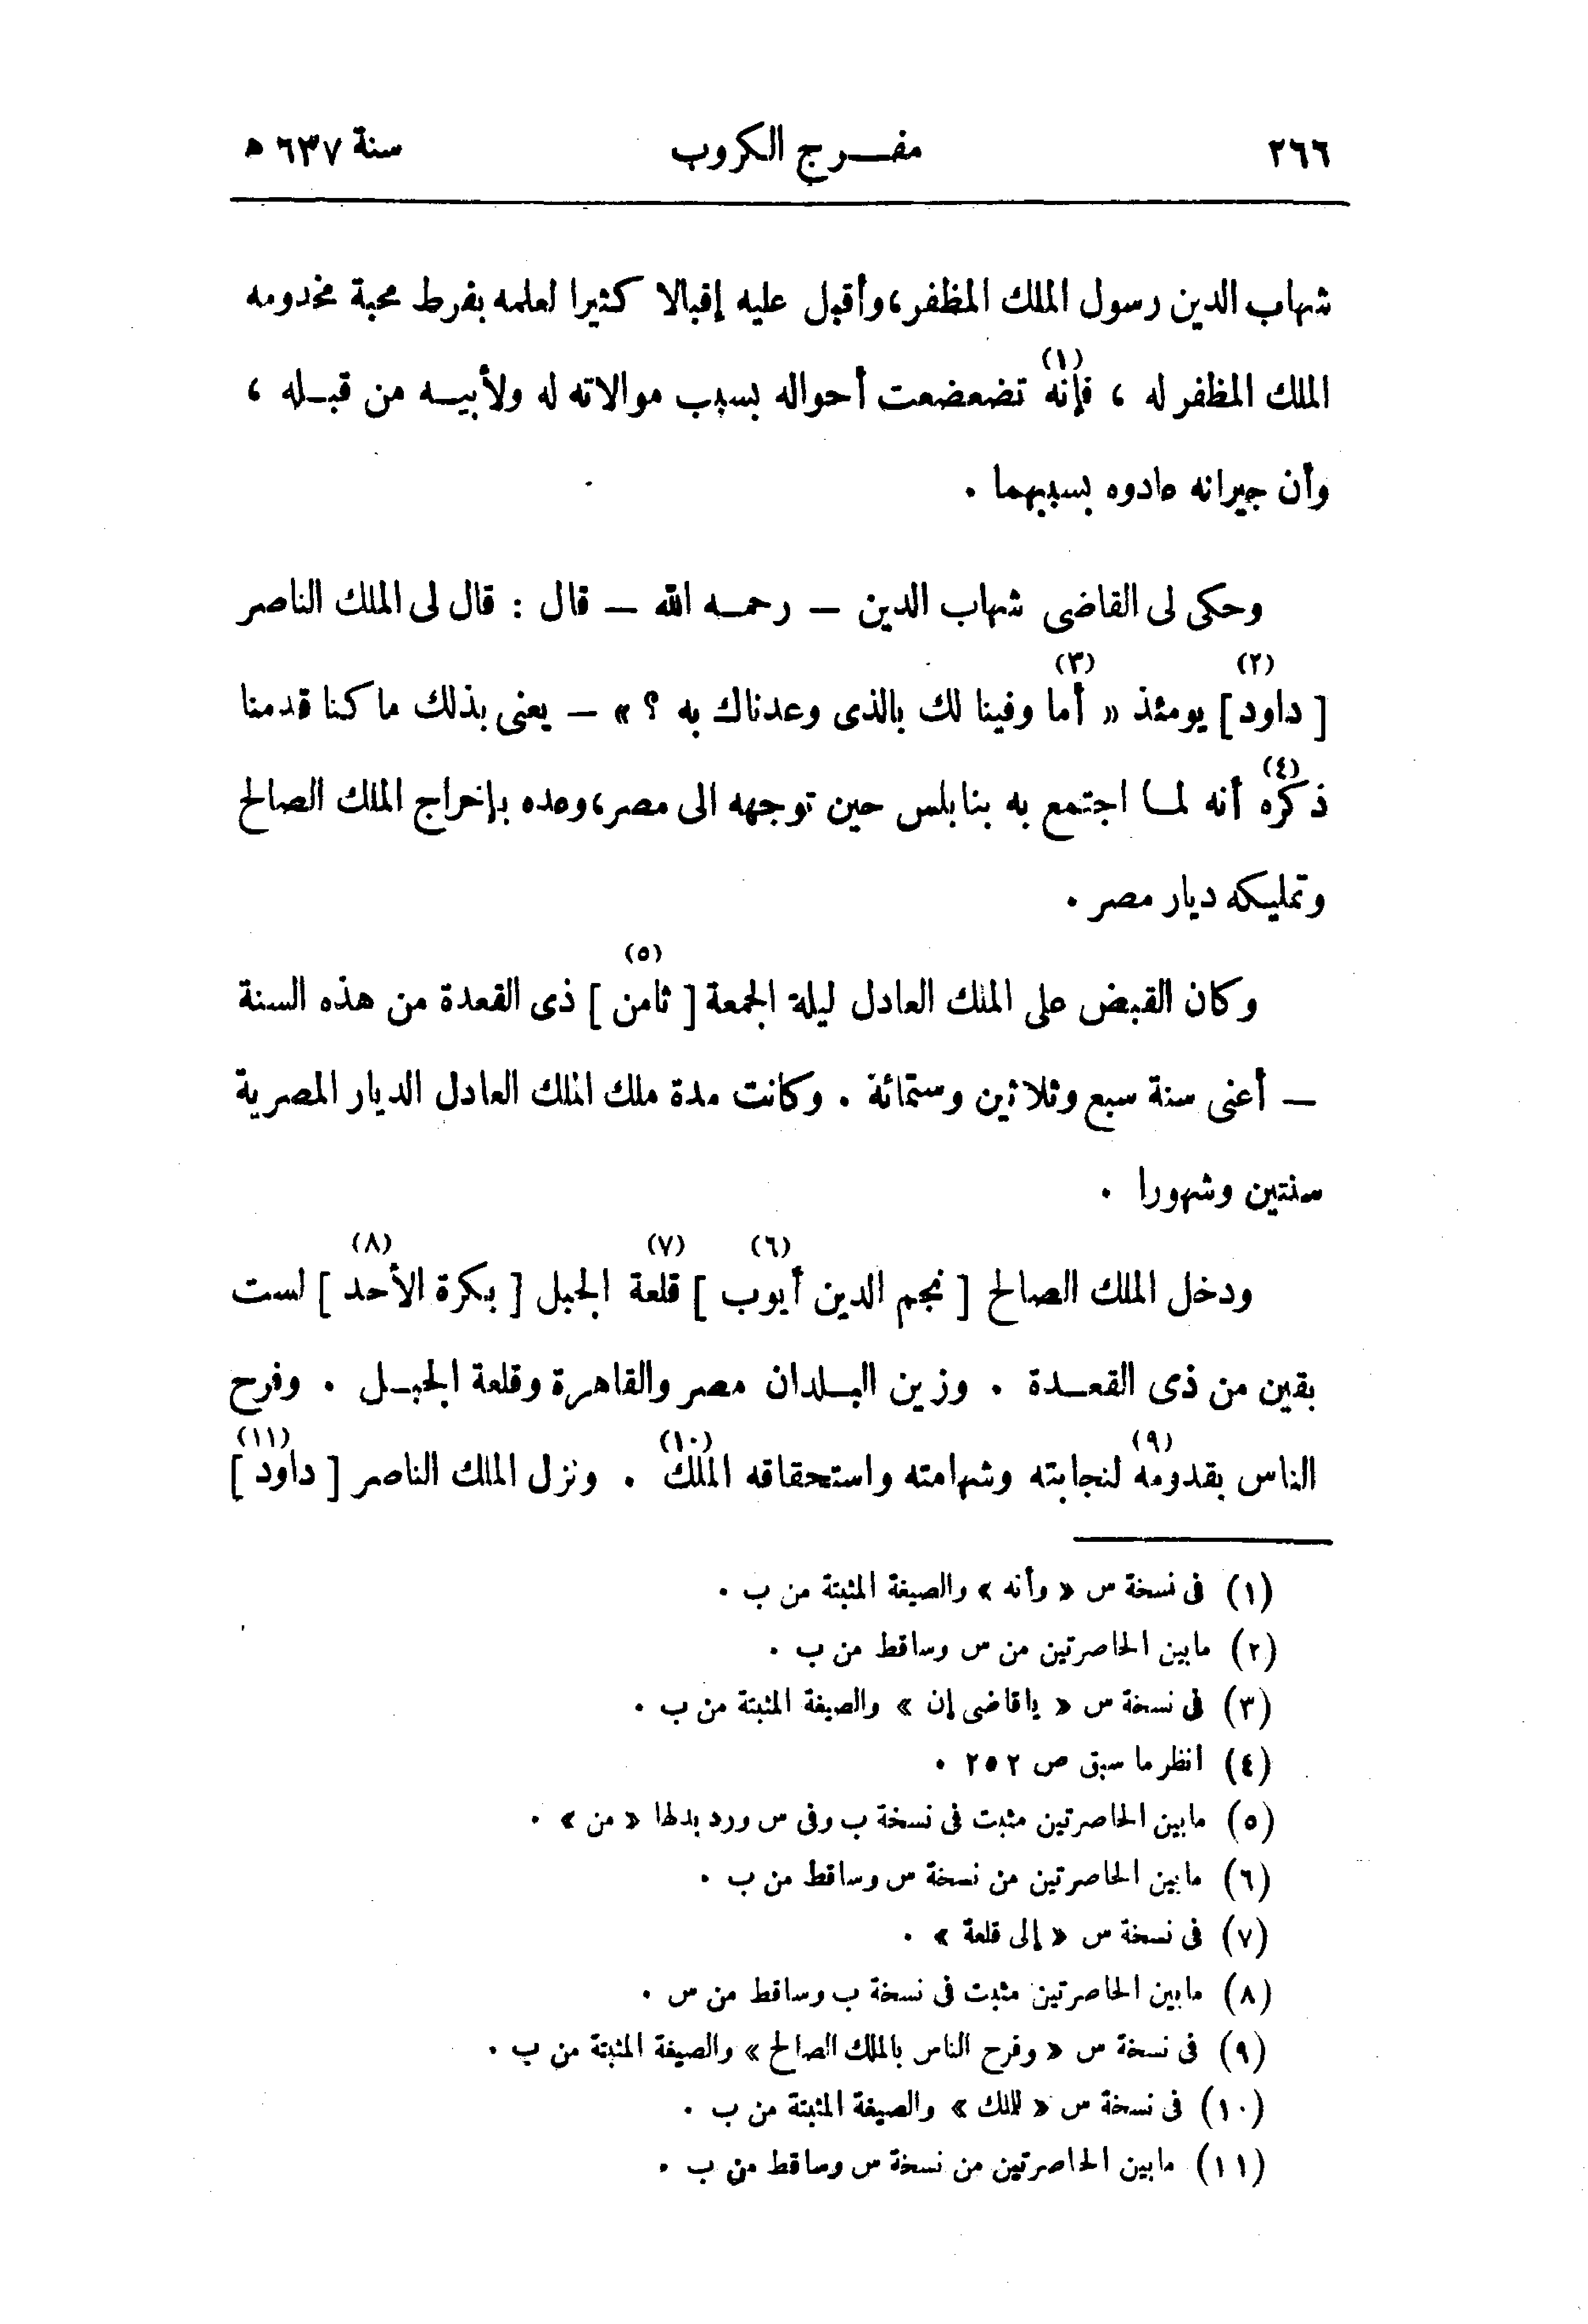 ٢٦٦ مفـــرج الكروب سنة ٦٣٧ ه
شهاب الدين رسول الملك المظفر، وأقبل عليه إقبالا كثيرا لعلمه بفرط محبة مخدومه
الملك المظفر له ، فإنه(١) تضعضعت أحواله بسبب موالاته له ولأبيــه من قبــله ،
وأن جيرانه عادوه بسببهما .
وحكى لى القاضى شهاب الدين — رحمــه الله — قال : قال لى الملك الناصر
[ داود ](٢) يومئذ « أما(٣) وفينا لك بالذى وعدناك به ؟ » — يعنى بذلك ما كنا قدمنا
ذكره(٤) أنه لمــا اجتمع به بنابلس حين توجهه الى مصر، وعده بإخراج الملك الصالح
وتمليكه ديار مصر .
وكان القبض على الملك العادل ليلة الجمعة [ ثامن ](٥) ذى القعدة من هذه السنة
— أعنى سنة سبع وثلاثين وستمائة . وكانت مدة ملك الملك العادل الديار المصرية
سنتين وشهورا .
ودخل الملك الصالح [ نجم الدين أيوب ](٦) قلعة(٧) الجبل [ بكرة الأحد ](٨) لست
بقين من ذى القعــدة . وزين البــلدان مصر والقاهرة وقلعة الجبــل . وفرح
الناس بقدومه(٩) لنجابته وشهامته واستحقاقه الملك(١٠) . ونزل الملك الناصر [ داود ](١١)
(١) فى نسخة س « وأنه » والصيغة المثبتة من ب .
(٢) مابين الحاصرتين من س وساقط من ب .
(٣) فى نسخة س « ياقاضى إن » والصيغة المثبتة من ب .
(٤) انظر ما سبق ص ٢٥٢ .
(٥) مابين الحاصرتين مثبت فى نسخة ب وفى س ورد بدلها « من » .
(٦) مابين الحاصرتين من نسخة س وساقط من ب .
(٧) فى نسخة س « إلى قلعة » .
(٨) مابين الحاصرتين مثبت فى نسخة ب وساقط من س .
(٩) فى نسخة س « وفرح الناس بالملك الصالح » والصيغة المثبتة من ب .
(١٠) فى نسخة س « للملك » والصيغة المثبتة من ب .
(١١) مابين الحاصرتين من نسخة س وساقط من ب .